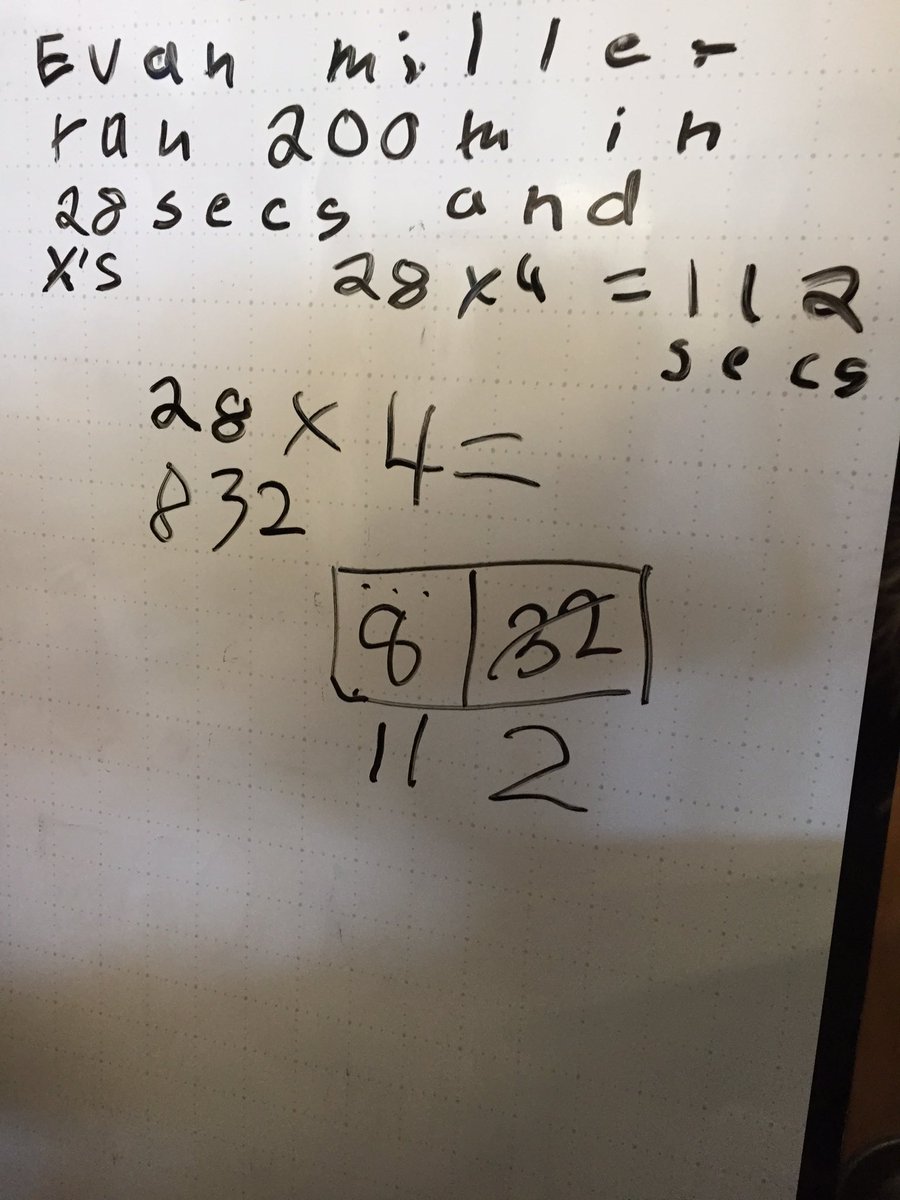 Evan miller
ran 200 m in
28 secs and
X's 28 x 4 = 112
secs
28 x 4 =
832
8 32
11 2